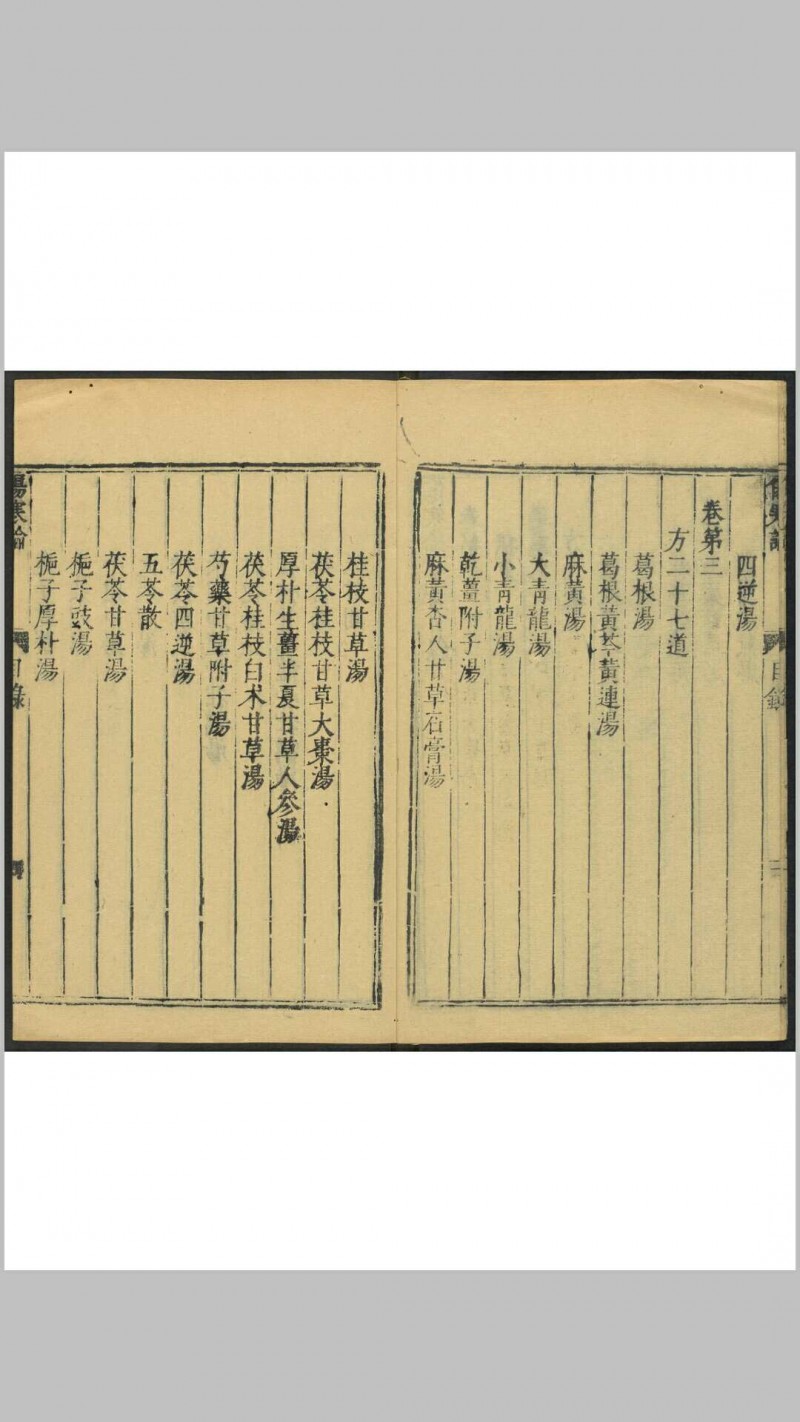 四逆湯
卷第三
方二十七道
葛根湯
葛根黃芩黃連湯
麻黃湯
大青龍湯
小青龍湯
乾薑附子湯
麻黃杏人甘草石膏湯
桂枝甘草湯
茯苓桂枝甘草大棗湯
厚朴生薑半夏甘草人參湯
茯苓桂枝白术甘草湯
芍藥甘草附子湯
茯苓四逆湯
五苓散
茯苓甘草湯
梔子豉湯
梔子厚朴湯
傷寒論
目錄